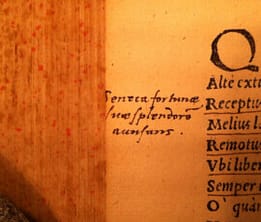 Seneca fortunæ
suæ splendore
Q
Alte exti
Receptus
Melius la
Remotus
Vbi liber
Semper i
O' quàn